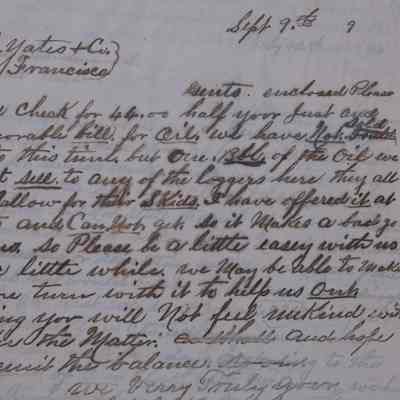 Sept 9th 9
Yates & Co.
Francisco
ents. enclosed Please
Check for 44.00 half your Just and
orable bill. for Oil, we have Not Sold
this time but One Bbl. of the Oil we
t sell to any of the loggers here they all
allow for their Skids, I have offered it at
t and Can Not get, so it Makes a bad go
so Please be a little easey with us
little while. we May be able to Make
turn with it to help us Out
ng you will Not feel unkind with
the Matter. and hope
remit the balance.
we Verry Truly yours,